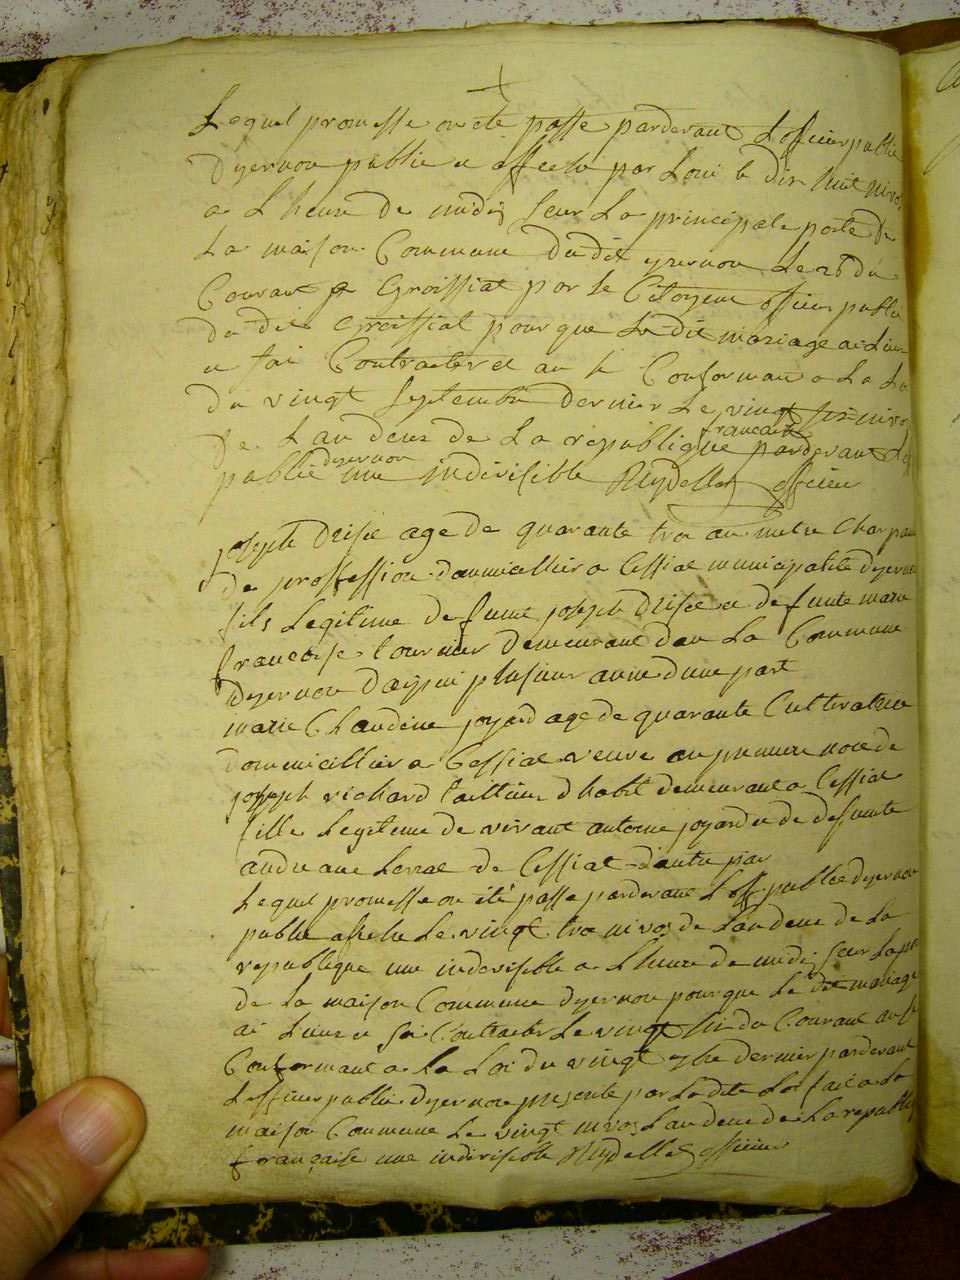 Lequel promesse on ete passe pardevant Lofficier public
Dyernon publie et affiche par Loui le dix huit nivos
a Lheure de midi seur La principale porte de
La maison Commune du dit yernon Le 26 du
Courant a Groissiat par le Citoyens officier public
du dit Groissiat pour que Le dit mariage ai Lieu
et soi Contracter et au se Conforman a La Loi
du vingt septembre dernier Le vingt nivo
se Lan deux de La republique francaise pardevant Lof
public dyernon une indivisible Reydellet officier
joseph Drisie age de quarante troi an metre Charpan
de proffession domicillier a Cessiat municipalite dyernon
fils Legitime de funt joseph Drisie et de funte marie
francoise tournier demeurant dan La Commune
Dyernon daipui plusieur anne dune part
marie Claudine joyard age de quarante Cultivatrice
domicillier a Cessiat veuve an premiere noce de
joseph richard tailleur dhabit demeurant a Cessiat
fille Legitime de vivant antoine joyard et de defunte
andreane de Cessiat dautre par
Lequel promesse on été passe pardevant L off public dyernon
public afiche Le vingt troi nivos de Landeux de La
republique une indivisible a Lheure de midi seur La por
de La maison Commune dyernon pour que Le dit mariage
ai Lieux et soi Contracter Le vingt si du Courant au se
Conformant a La Loi du vingt 7bre dernier pardevant
Lofficier public Dyernon presente par La dite Loi fait a La
maison Commune Le vingt nivos Landeux de La republiq
française une indivisible Reydellet officier